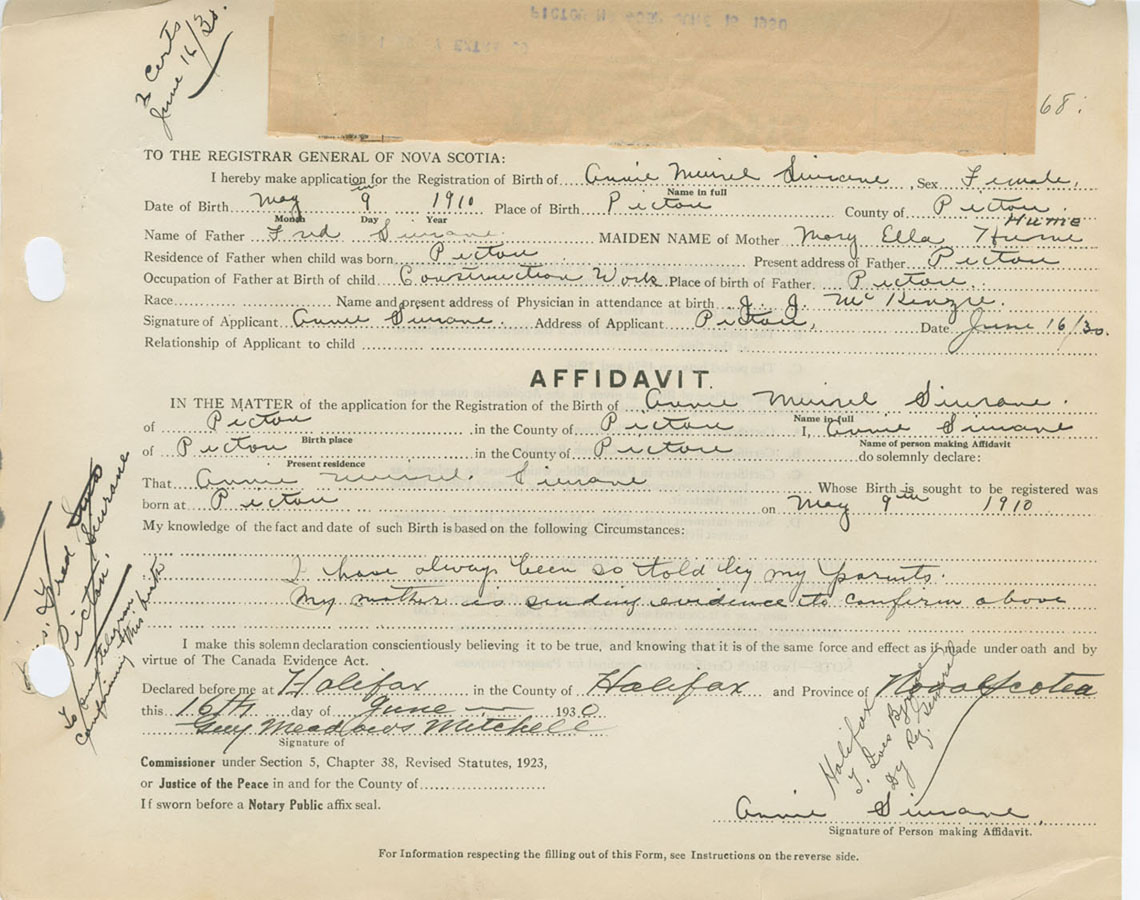 PICTOU N. S.
1930
2 Certs
June 16/30.
68:
TO THE REGISTRAR GENERAL OF NOVA SCOTIA:
I hereby make application for the Registration of Birth of Annie Muirel Simrane, Sex Female,
Name in full
Date of Birth May 9th 1910 Place of Birth Pictou County of Pictou.
Month Day Year
HUME
Name of Father Fred Simrane MAIDEN NAME of Mother Mary Ella Hume
Residence of Father when child was born Pictou Present address of Father Pictou
Occupation of Father at Birth of child Construction Work Place of birth of Father Pictou.
Race Name and present address of Physician in attendance at birth J. J. McKenzie.
Signature of Applicant Annie Simrane. Address of Applicant Pictou, Date June 16/30.
Relationship of Applicant to child
AFFIDAVIT.
IN THE MATTER of the application for the Registration of the Birth of Annie Muirel Simrane.
Name in full
of Pictou in the County of Pictou I, Annie Simrane
Birth place Name of person making Affidavit
of Pictou in the County of Pictou do solemnly declare:
Present residence
That Annie Muirel Simrane Whose Birth is sought to be registered was
born at Pictou on May 9th 1910
My knowledge of the fact and date of such Birth is based on the following Circumstances:
I have always been so told by my parents.
My mother is sending evidence to confirm above
I make this solemn declaration conscientiously believing it to be true, and knowing that it is of the same force and effect as if made under oath and by
virtue of The Canada Evidence Act.
Declared before me at Halifax in the County of Halifax and Province of Nova Scotia
this 16th day of June 1930
Guy Meadows Mitchell
Signature of
Commissioner under Section 5, Chapter 38, Revised Statutes, 1923,
or Justice of the Peace in and for the County of
If sworn before a Notary Public affix seal.
Halifax
Dy Reg. General
Annie Simrane,
Signature of Person making Affidavit.
For Information respecting the filling out of this Form, see Instructions on the reverse side.
Mrs. Fred Simrane
Pictou.
To send telegram
confirming this birth